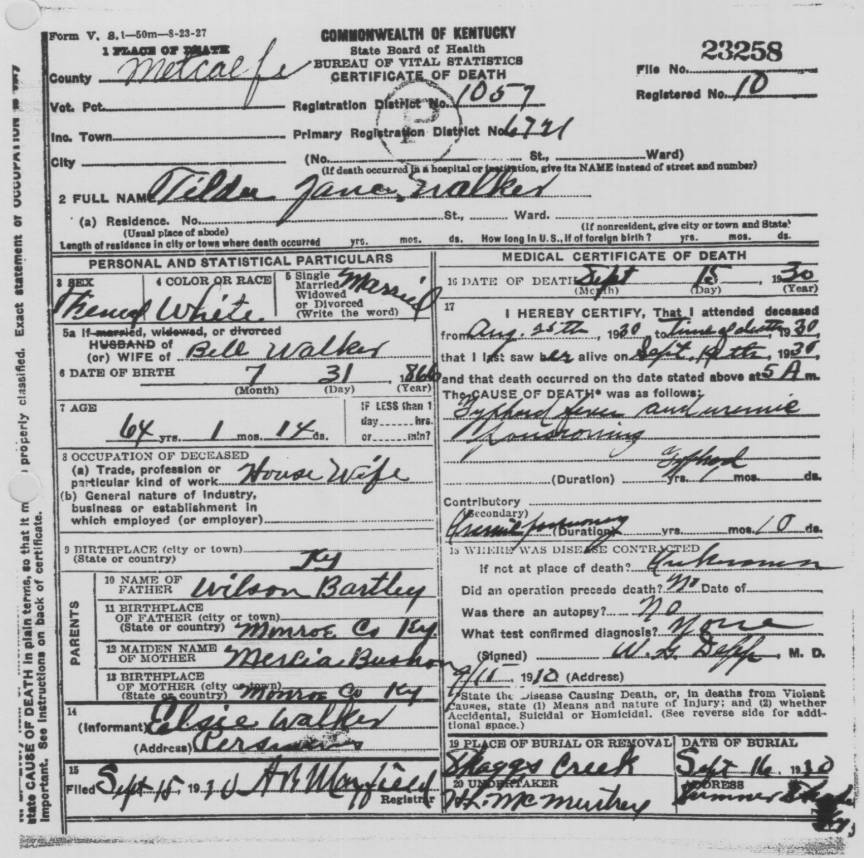 Form V. S. 1—50m—8-23-27
COMMONWEALTH OF KENTUCKY
State Board of Health
BUREAU OF VITAL STATISTICS
CERTIFICATE OF DEATH
1 PLACE OF DEATH
County Metcalfe
File No. 23258
Registered No. 10
Vot. Pct.
Registration District No. 1057
Inc. Town
Primary Registration District No. 6721
P
City (No. St., Ward)
(If death occurred in a hospital or institution, give its NAME instead of street and number)
2 FULL NAME Tilda Jane Walker
(a) Residence. No. St., Ward.
(Usual place of abode) (If nonresident, give city or town and State)
Length of residence in city or town where death occurred yrs. mos. ds. How long in U.S., if of foreign birth? yrs. mos. ds.
PERSONAL AND STATISTICAL PARTICULARS
3 SEX 4 COLOR OR RACE 5 Single Married Widowed or Divorced (Write the word)
White Married
5a If married, widowed, or divorced
HUSBAND of
(or) WIFE of Bill Walker
6 DATE OF BIRTH 7 31 1866
(Month) (Day) (Year)
7 AGE IF LESS than 1
day hrs.
64 yrs. 1 mos. 14 ds. or min?
8 OCCUPATION OF DECEASED
(a) Trade, profession or
particular kind of work House Wife
(b) General nature of industry,
business or establishment in
which employed (or employer)
9 BIRTHPLACE (city or town)
(State or country) Ky
PARENTS
10 NAME OF
FATHER Wilson Bartley
11 BIRTHPLACE
OF FATHER (city or town)
(State or country) Monroe Co Ky.
12 MAIDEN NAME
OF MOTHER
13 BIRTHPLACE
OF MOTHER (city or town)
(State or country) Monroe Co Ky
14
(Informant) Elsie Walker
(Address)
15
Filed Sept 15 1930 Mayfield
Registrar
MEDICAL CERTIFICATE OF DEATH
16 DATE OF DEATH Sept 15, 1930
(Month) (Day) (Year)
17
I HEREBY CERTIFY, That I attended deceased
from Aug. 25th, 1930 to time of death, 1930
that I last saw her alive on Sept. , 1930
and that death occurred on the date stated above at 5 A m.
The CAUSE OF DEATH* was as follows:
Typhoid fever and uremic
poisoning
Typhoid
(Duration) yrs. mos. ds.
Contributory
(Secondary)
Uremic poisoning (Duration) yrs. mos. 10 ds.
18 WHERE WAS DISEASE CONTRACTED
If not at place of death? Unknown
Did an operation precede death? No Date of
Was there an autopsy? No
What test confirmed diagnosis? None
(Signed) W. G. Depp M. D.
9/15 1930 (Address)
*State the Disease Causing Death, or, in deaths from Violent
Causes, state (1) Means and nature of Injury; and (2) whether
Accidental, Suicidal or Homicidal. (See reverse side for addi-
tional space.)
19 PLACE OF BURIAL OR REMOVAL DATE OF BURIAL
Skaggs Creek Sept 16 1930
20 UNDERTAKER ADDRESS
McMurtrey Summer Shade
Ky.
properly classified. Exact statement of OCCUPATION is very
state CAUSE OF DEATH in plain terms, so that it m
important. See instructions on back of certificate.